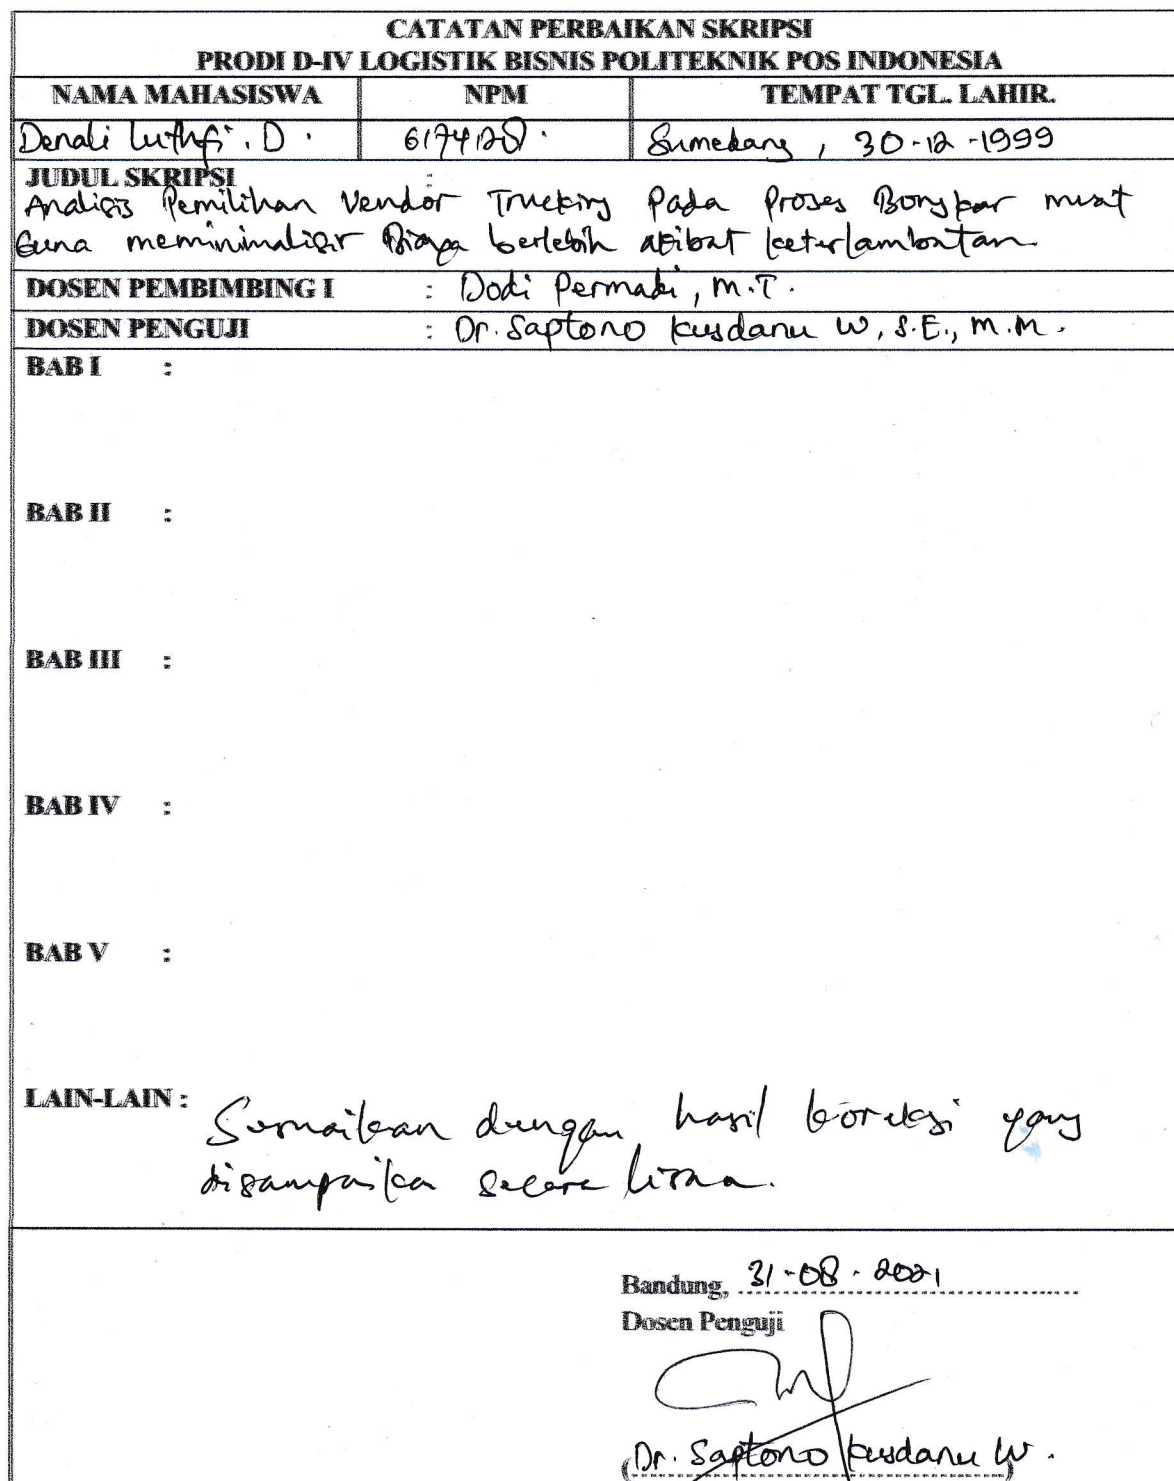 CATATAN PERBAIKAN SKRIPSI
PRODI D-IV LOGISTIK BISNIS POLITEKNIK POS INDONESIA
NAMA MAHASISWA NPM TEMPAT TGL. LAHIR.
Denali Luthfi. D. 6174128. Sumedang, 30-12-1999
JUDUL SKRIPSI :
Analisis Pemilihan Vendor Trucking Pada Proses Bongkar muat
Guna meminimalisir Biaya berlebih akibat keterlambatan.
DOSEN PEMBIMBING I : Dodi Permadi, M.T.
DOSEN PENGUJI : Dr. Saptono Kusdanu W, S.E., M.M.
BAB I :
BAB II :
BAB III :
BAB IV :
BAB V :
LAIN-LAIN : Sesuaikan dengan hasil koreksi yang
disampaika secara lisan.
Bandung, 31-08-2021
Dosen Penguji
(Dr. Saptono Kusdanu W.)